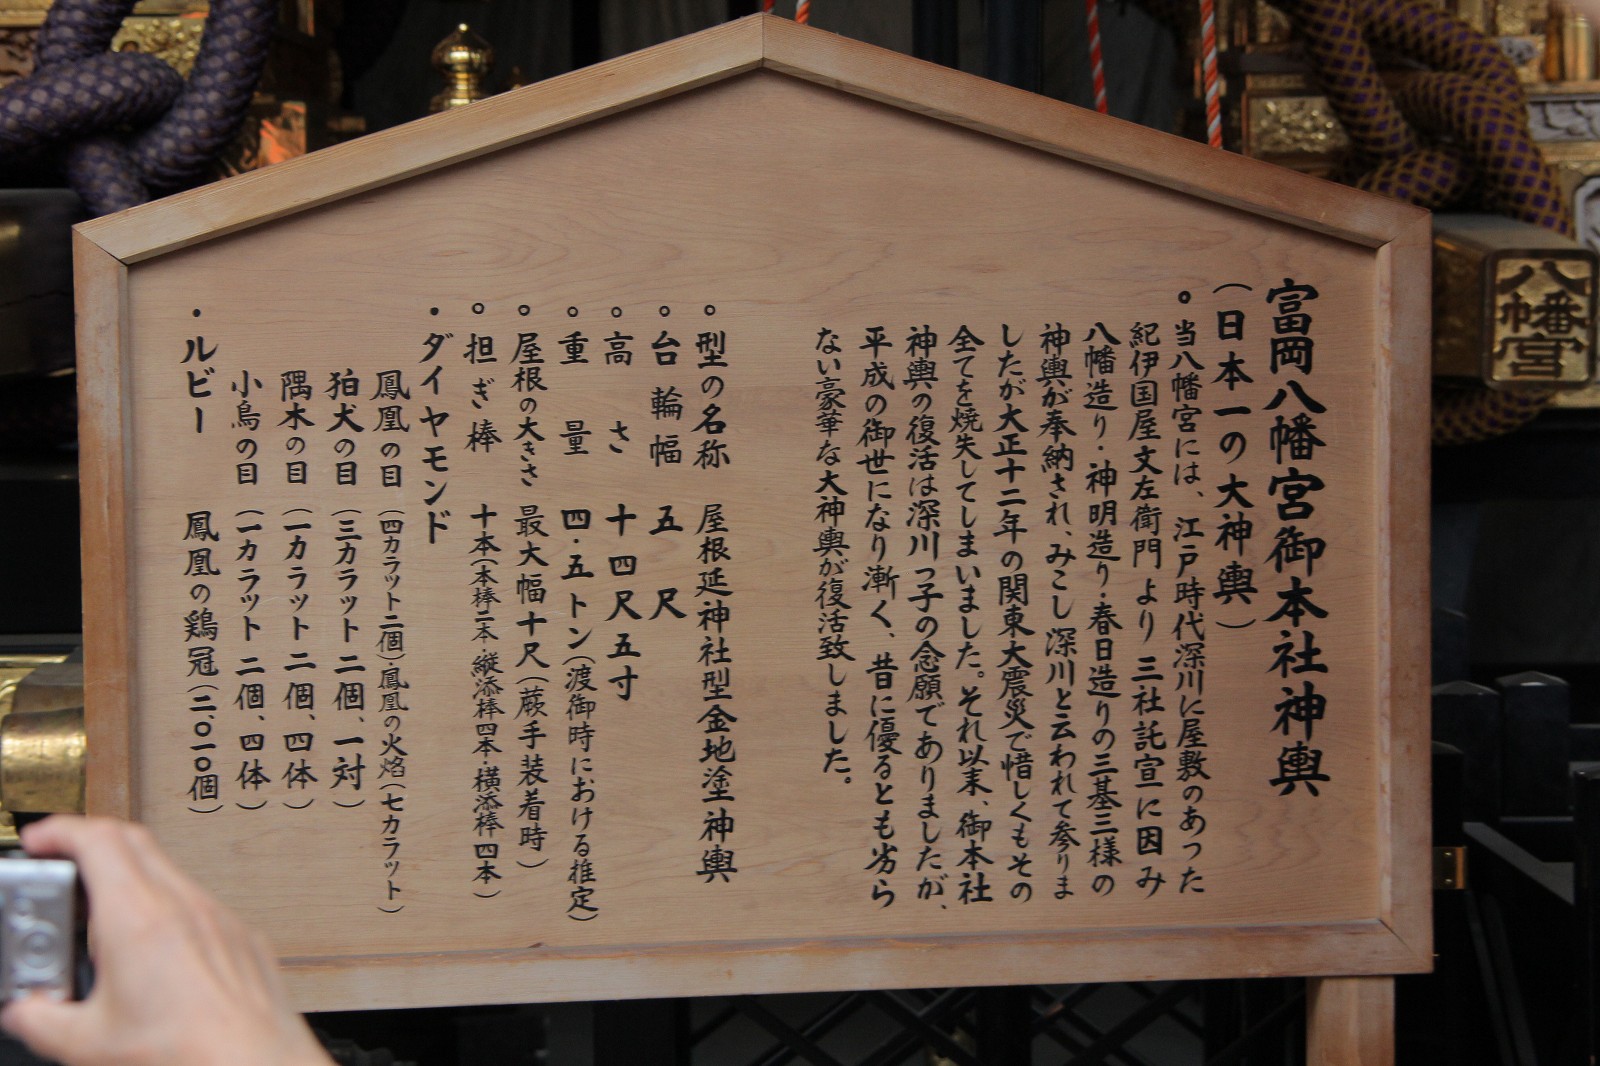 富岡八幡宮御本社神輿
（日本一の大神輿）
。当八幡宮には、江戸時代深川に屋敷のあった
紀伊国屋文左衛門より三社託宣に因み
八幡造り・神明造り・春日造りの三基三様の
神輿が奉納され、みこし深川と云われて参りま
したが大正十二年の関東大震災で惜しくもその
全てを焼失してしまいました。それ以末、御本社
神輿の復活は深川っ子の念願でありましたが、
平成の御世になり漸く、昔に優るとも劣ら
ない豪華な大神輿が復活致しました。
。型の名称 屋根延神社型金地塗神輿
。台輪幅 五尺
。高さ 十四尺五寸
。重量 四・五トン（渡御時における推定）
。屋根の大きさ 最大幅十尺（蕨手装着時）
。担ぎ棒 十本（本棒二本・縦添棒四本・横添棒四本）
・ダイヤモンド
鳳凰の目（四カラット二個）・鳳凰の火焰（七カラット）
狛犬の目（三カラット二個、一対）
隅木の目（一カラット二個、四体）
小鳥の目（一カラット二個、四体）
・ルビー 鳳凰の鶏冠（二、〇一〇個）
八幡宮